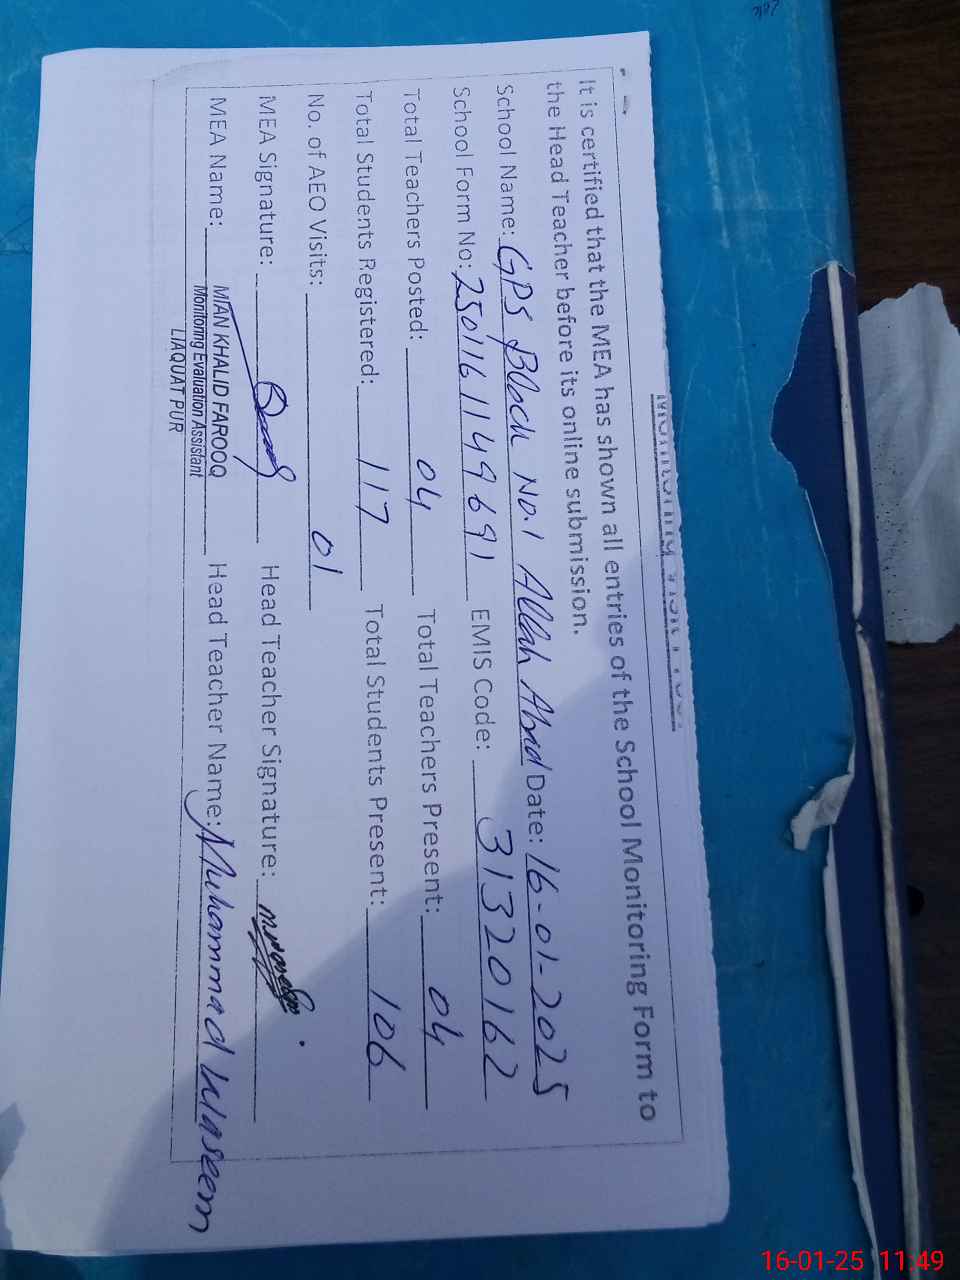 It is certified that the MEA has shown all entries of the School Monitoring Form to
the Head Teacher before its online submission.
School Name: GPS Block No.1 Allah Abad Date: 16-01-2025
School Form No: 2501161149691 EMIS Code: 31320162
Total Teachers Posted: 04 Total Teachers Present: 04
Total Students Registered: 117 Total Students Present: 106
No. of AEO Visits: 01
MEA Signature: Head Teacher Signature:
MEA Name: MIAN KHALID FAROOQ Head Teacher Name: Muhammad Waseem
Monitoring Evaluation Assistant
LIAQUAT PUR
16-01-25 11:49